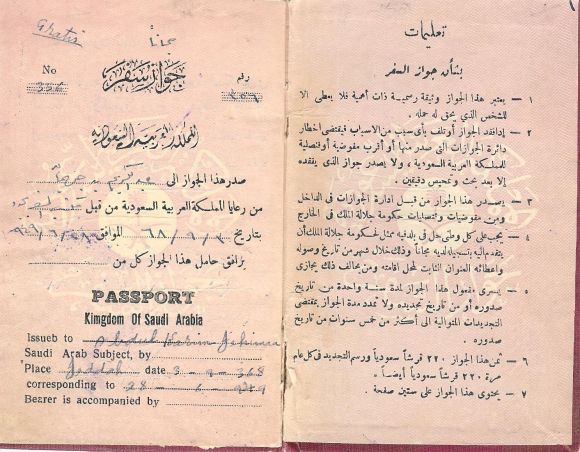 Gratis
مجاناً
No
رقم
جواز سفر
المملكة العربية السعودية
صدر هذا الجواز الى
من رعايا المملكة العربية السعودية من قبل
بتاريخ ٦٨/٩/٣ الموافق
يرافق حامل هذا الجواز كل من
PASSPORT
Kimgdom Of Saudi Arabia
Issueb to Abdul Karim Jehiman
Saudi Arab Subject, by
Place Jeddah date 3-9-368
corresponding to 28-6-949
Bearer is accompanied by
تعليمات
بشأن جواز السفر
١ — يعتبر هذا الجواز وثيقة رسمية ذات أهمية فلا يعطى الا
للشخص الذي يحق له حمله.
٢ — إذا فقد الجواز أو تلف بأى سبب من الاسباب فيقتضى اخطار
دائرة الجوازات التى صدر منها أو أقرب مفوضية أو قنصلية
للمملكة العربية السعودية، ولا يصدر جواز بدل الذي يفقده
إلا بعد بحث وتمحيص دقيقين.
٣ — يصدر هذا الجواز من قبل ادارة الجوازات فى الداخل
ومن مفوضيات وقنصليات حكومة جلالة الملك فى الخارج
٤ — يجب على كل من حل فى بلد فيه ممثل لحكومة جلالة الملك أن
يتقدم اليه بتسجيله لديه مجاناً وذلك خلال شهر من تاريخ وصوله
واعطائه العنوان الثابت لمحل اقامته ومن يخالف ذلك يجازى
٥ — يسرى مفعول هذا الجواز لمدة سنة واحدة من تاريخ
صدوره أو من تاريخ تجديده ولا تمدد مدة الجواز بمقتضى
التجديدات المتوالية الى أكثر من خمس سنوات من تاريخ
صدوره.
٦ — ثمن هذا الجواز ٢٢٠ قرشاً سعودياً ورسم التجديد فى كل عام
مرة ٢٢٠ قرش سعودياً أيضاً.
٧ — يحتوى هذا الجواز على ستين صفحة.